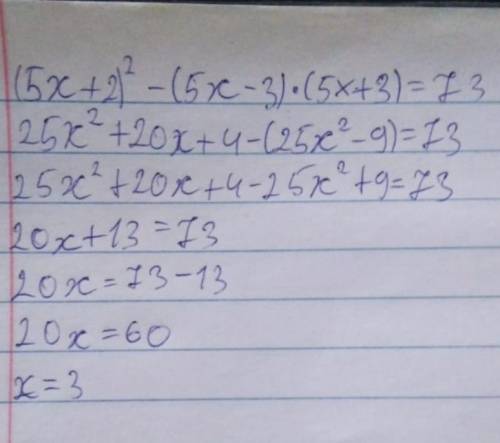 (5x+2)² -(5x-3)·(5x+3)=73
25x²+20x+4-(25x²-9)=73
25x²+20x+4-25x²+9=73
20x+13=73
20x=73-13
20x=60
x=3